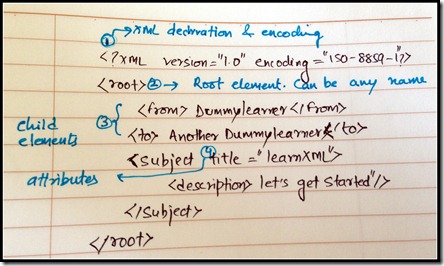 ① → XML declaration & encoding
<?xml version="1.0" encoding="ISO-8859-1"?>
<root> ② → Root element. Can be any name
<from> Dummylearner </from>
child elements ③ {
<to> Another Dummylearner </to>
<subject title="learnXML">
④ attributes
<description> let's get started"/>
</subject>
</root>